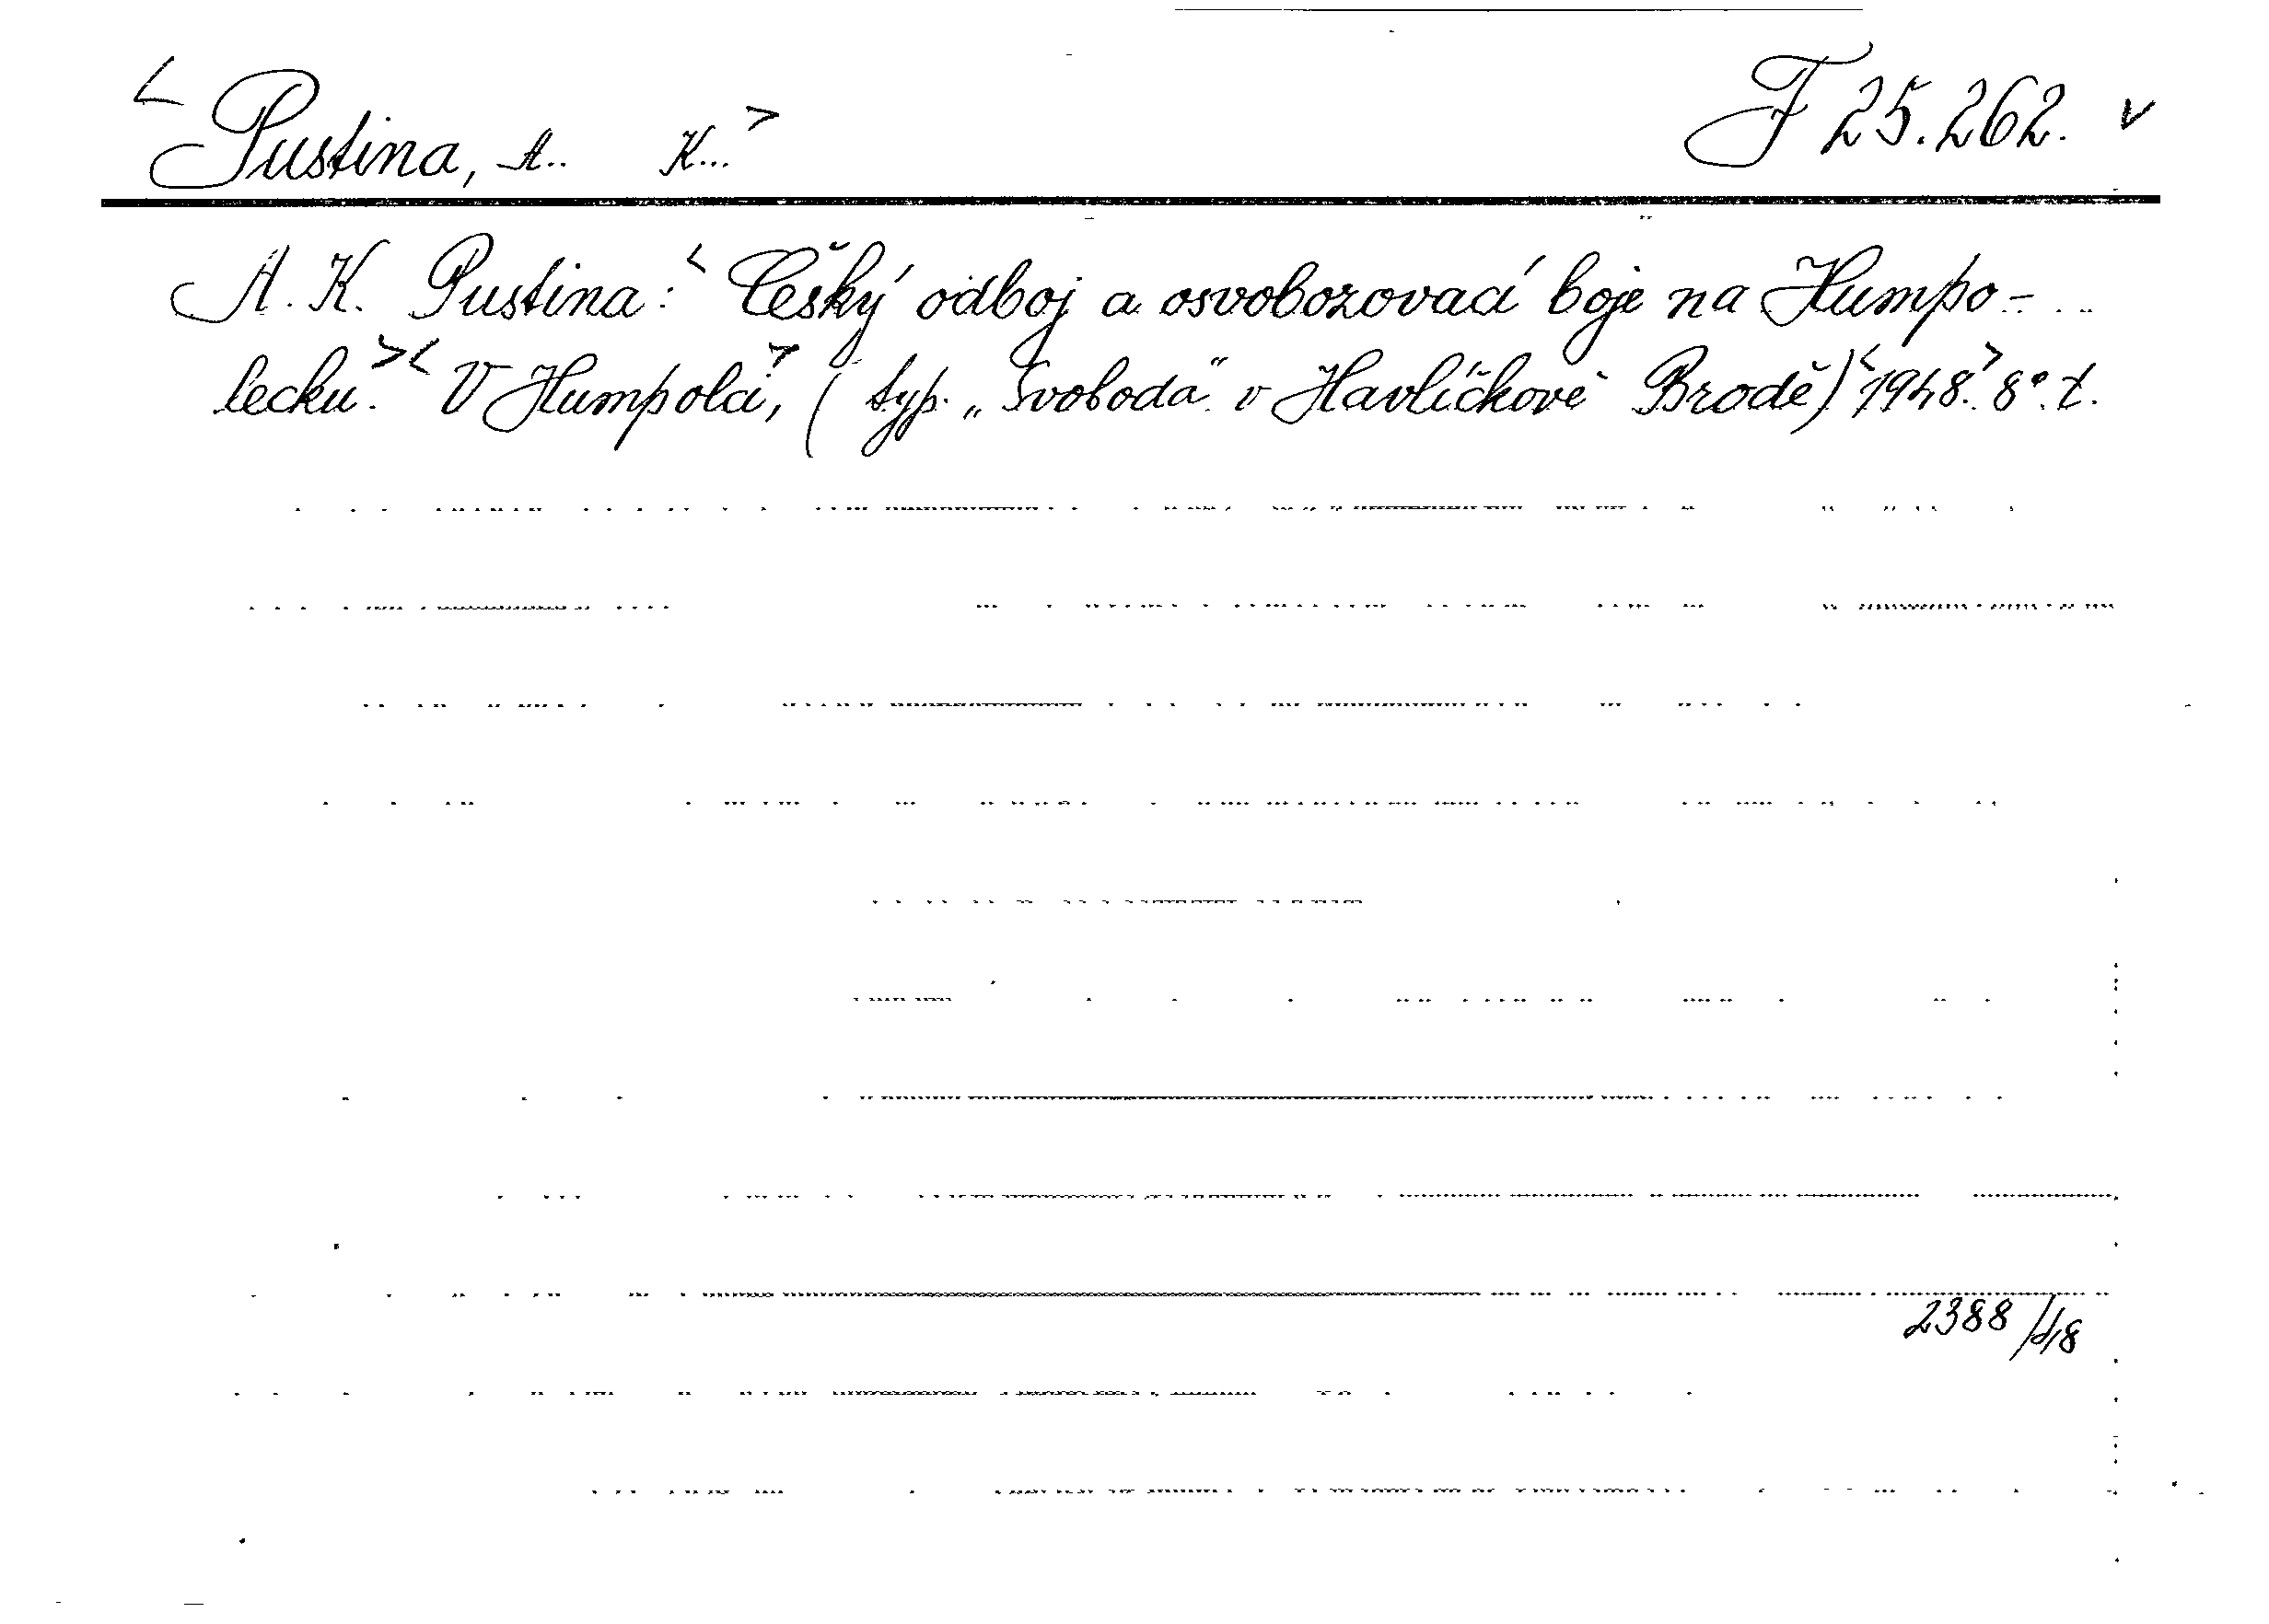 <Pustina, A.. K...> F 25.262. v
A. K. Pustina: <Český odboj a osvobozovací boje na Humpo-
lecku.>< V Humpolci>, (typ. „Svoboda" v Havlíčkově Brodě) <1948.> 8°. t.
2388/48